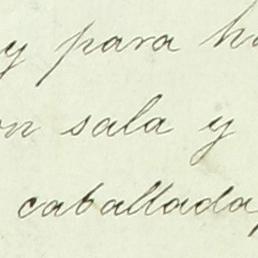 y para ha
on sala y
caballada,